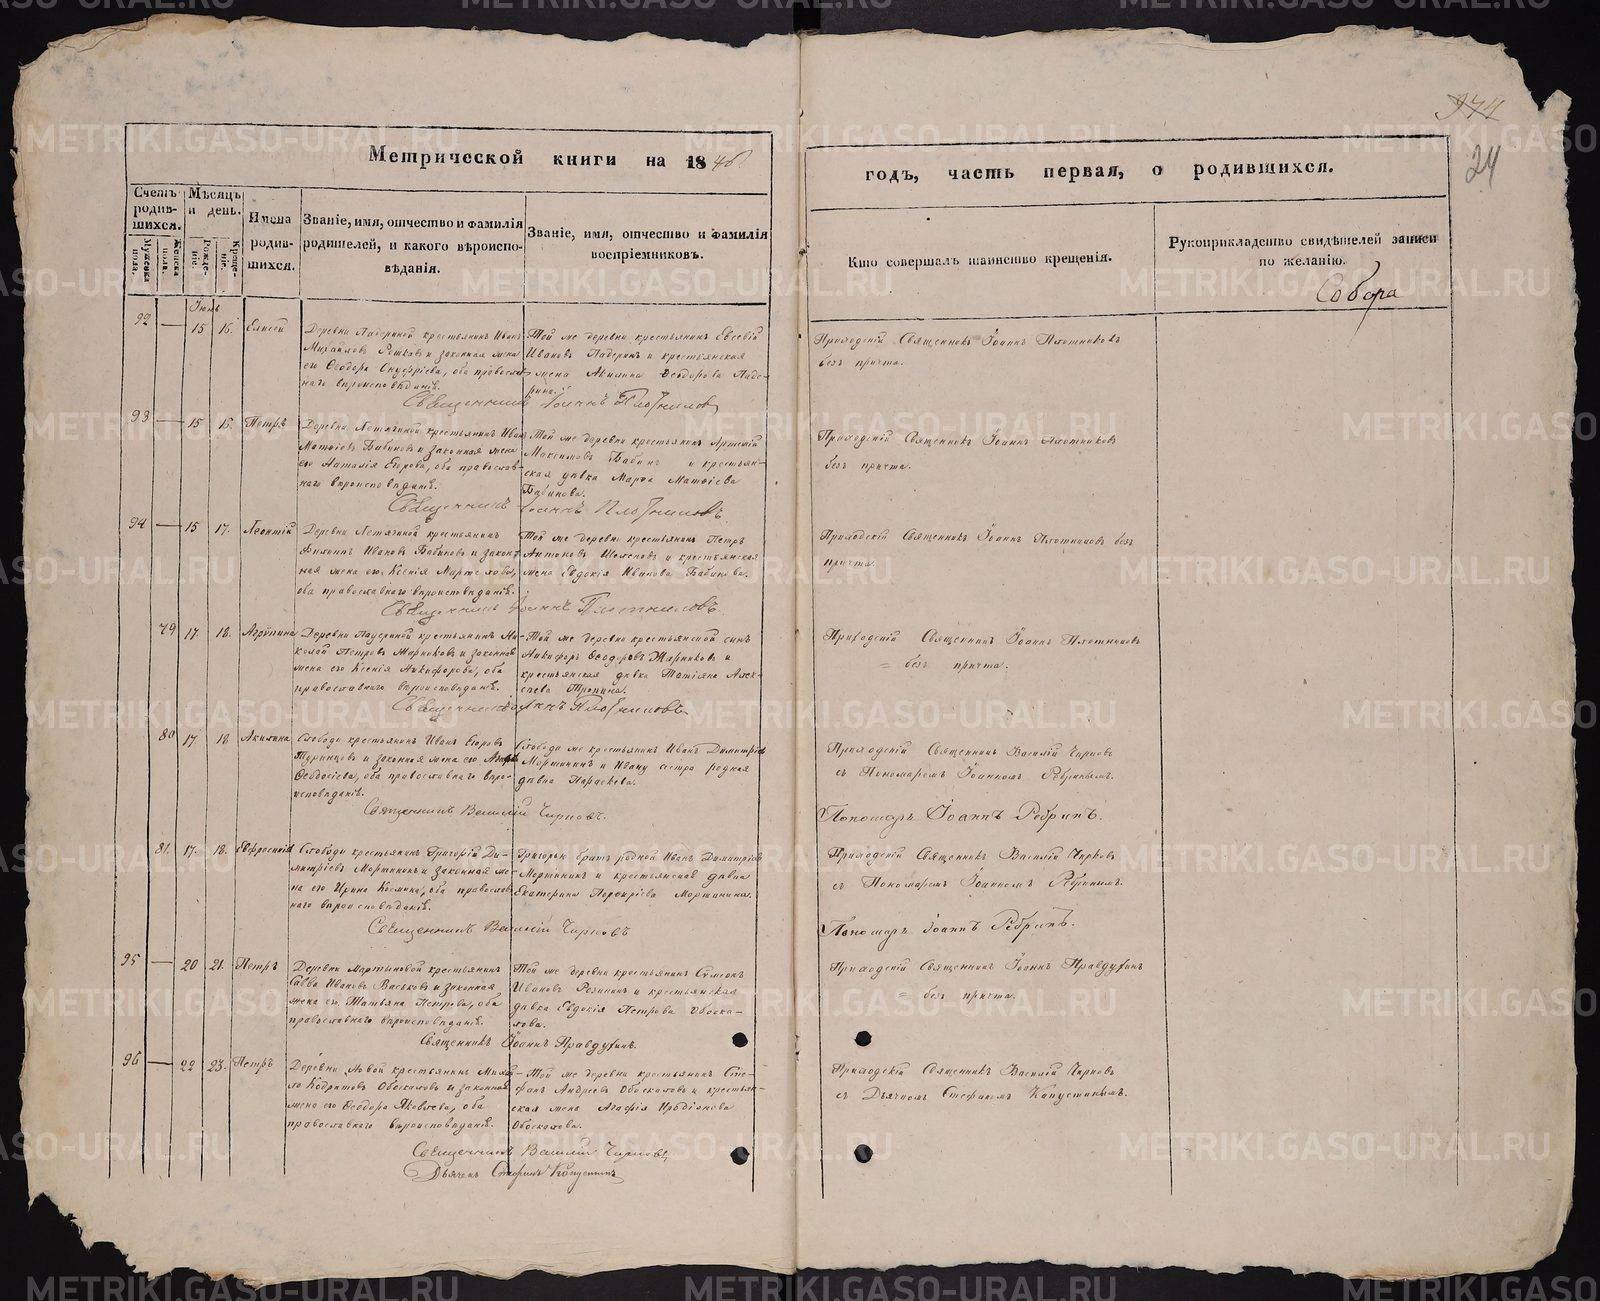 974
24
Метрической книги на 1846
годъ, часть первая, о родившихся.
Счетъ родив-шихся.
Мужеска пола.
Женска пола.
Мѣсяцъ и день.
Рожде-ніе.
Креще-ніе.
Имена родив-шихся.
Званіе, имя, отчество и фамилія
родителей, и какого вѣроиспо-
вѣданія.
Званіе, имя, отчество и фамилія
воспріемниковъ.
Кто совершалъ таинство крещенія.
Рукоприкладство свидѣтелей записи
по желанію.
Собора
Іюнь
92 — 15 16. Елисей
Деревни крестьянинъ Иванъ
Михайловъ и законная жена
его Ѳеодора Онуфріева, оба православ-
наго вѣроисповѣданія.
Той же деревни крестьянинъ Евсевій
Ивановъ и крестьянская
жена Акилина Ѳеодорова
Приходскій Священникъ Іоаннъ Плотниковъ
безъ причта.
Священникъ Іоаннъ Плотниковъ
93 — 15 15. Петръ
Деревни крестьянинъ Иванъ
Матѳіевъ Бабиновъ и законная жена
его Наталія Егорова, оба православ-
наго вѣроисповѣданія.
Той же деревни крестьянинъ Артемій
Максимовъ Бабинъ и крестьян-
ская дѣвка Марѳа Матѳіева
Бабинова.
Приходскій Священникъ Іоаннъ Плотниковъ
безъ причта.
Священникъ Іоаннъ Плотниковъ.
94 — 15 17. Леонтій
Деревни крестьянинъ
Филиппъ Ивановъ Бабиновъ и закон-
ная жена его Ксенія
оба православнаго вѣроисповѣданія.
Той же деревни крестьянинъ Петръ
Антоновъ и крестьянская
жена Евдокія Иванова Бабинова.
Приходскій Священникъ Іоаннъ Плотниковъ безъ
причта.
Священникъ Іоаннъ Плотниковъ.
79 17. 18. Агрипина
Деревни крестьянинъ Ни-
колай Петровъ и законная
жена его Ксенія Никифорова, оба
православнаго вѣроисповѣданія.
Той же деревни крестьянской сынъ
Никифоръ Ѳеодоровъ и
крестьянская дѣвка Татіана Алек-
сѣева
Приходскій Священникъ Іоаннъ Плотниковъ
= безъ причта.
Священникъ Іоаннъ Плотниковъ
80 17 18 Акилина
Слободы крестьянинъ Иванъ Егоровъ
и законная жена его
Ѳеодосіева, оба православнаго вѣро-
исповѣданія.
Слободы же крестьянинъ Иванъ Димитріевъ
Мортининъ и Ивану сестра родная
дѣвка Параскева.
Приходскій Священникъ Василій Чирковъ
съ Пономаремъ Іоанномъ Ребринымъ.
Священникъ Василій Чирковъ.
Пономарь Іоаннъ Ребринъ.
81. 17. 18. Евфросинія
Слободы крестьянинъ Григорій Ди-
митріевъ Мортининъ и законная же-
на его Ирина Козмина, оба православ-
наго вѣроисповѣданія.
Григорью братъ родной Иванъ Димитріевъ
Мортининъ и крестьянская дѣвка
Екатерина Порфиріева Мортинина.
Приходскій Священникъ Василій Чирковъ
съ Пономаремъ Іоанномъ Ребринымъ.
Священникъ Василій Чирковъ
Пономарь Іоаннъ Ребринъ.
95 — 20 21. Петръ
Деревни Мартыновой крестьянинъ
Савва Ивановъ Васьковъ и законная
жена его Татьяна Петрова, оба
православнаго вѣроисповѣданія.
Той же деревни крестьянинъ Симеонъ
Ивановъ и крестьянская
дѣвка Евдокія Петрова Обоска-
лова.
Приходскій Священникъ Іоаннъ Правдухинъ
= безъ причта.
Священникъ Іоаннъ Правдухинъ.
96 — 22 23. Петръ
Деревни Новой крестьянинъ Михай-
ло Обоскаловъ и законная
жена его Ѳеодора Яковлева, оба
православнаго вѣроисповѣданія.
Той же деревни крестьянинъ Сте-
фанъ Андреевъ Обоскаловъ и крестьян-
ская жена Агафія Иродіонова
Обоскалова.
Приходскій Священникъ Василій Чирковъ
съ Дьячкомъ Стефаномъ Капустинымъ.
Священникъ Василій Чирковъ
Дьячекъ Стефанъ Капустинъ
METRIKI.GASO-URAL.RU